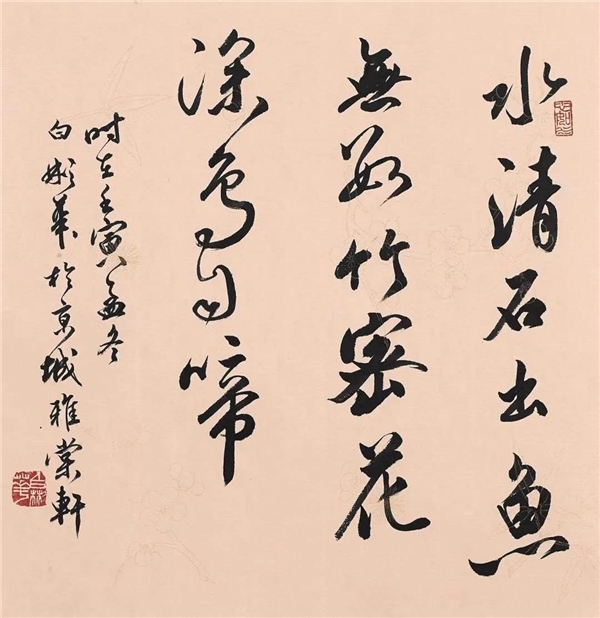 水清石出魚
無數竹密花
深鳥自啼
時在壬寅孟冬
白彬華於京城雅棠軒